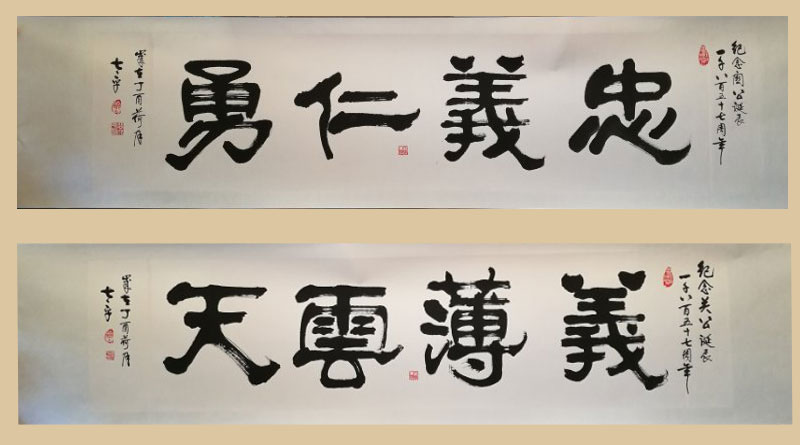 纪念関公诞辰
一千八百五十七周年
忠義仁勇
歲在丁酉荷月
纪念关公诞辰
一千八百五十七周年
義薄雲天
歲在丁酉荷月